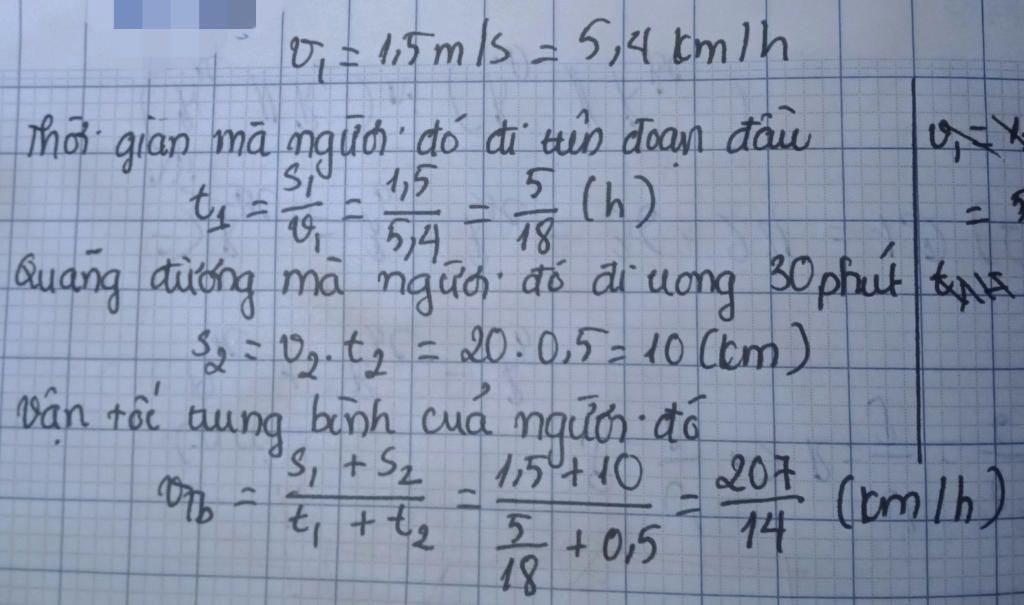 v₁ = 1,5 m/s = 5,4 km/h
Thời gian mà người đó đi trên đoạn đầu
t₁ = s₁/v₁ = 1,5/5,4 = 5/18 (h)
Quãng đường mà người đó đi trong 30 phút
s₂ = v₂ . t₂ = 20 . 0,5 = 10 (km)
Vận tốc trung bình của người đó
v_tb = (s₁ + s₂)/(t₁ + t₂) = (1,5 + 10)/(5/18 + 0,5) = 207/14 (km/h)
v₁ =
=